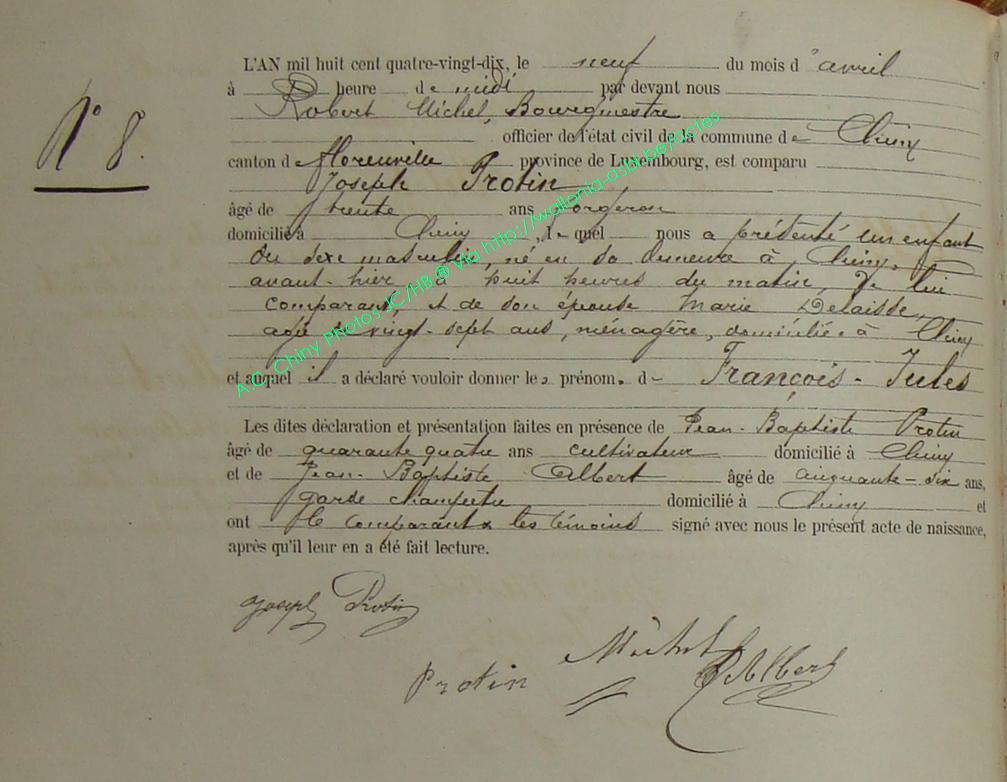 N° 8.
L'AN mil huit cent quatre-vingt-dix, le neuf du mois d'avril
à heure de midi par devant nous
Robert Michel, Bourgmestre
officier de l'état civil de la commune de Chiny
canton de Florenville province de Luxembourg, est comparu
Joseph Protin
âgé de trente ans forgeron
domicilié à Chiny, lequel nous a présenté un enfant
du sexe masculin, né en sa demeure à Chiny,
avant-hier à huit heures du matin, de lui
comparant, et de son épouse Marie Delaisse,
agée de vingt-sept ans, ménagère, domiciliée à Chiny
et auquel il a déclaré vouloir donner les prénoms de François-Jules
Les dites déclaration et présentation faites en présence de Jean-Baptiste Protin
âgé de quarante quatre ans cultivateur domicilié à Chiny
et de Jean-Baptiste Albert âgé de cinquante-six ans,
garde champêtre domicilié à Chiny et
ont le comparant & les témoins signé avec nous le présent acte de naissance,
après qu'il leur en a été fait lecture.
Joseph Protin
Protin
Michel
Albert
A.C. Chiny Photos JC/HB @ via http://wallonia-asbl.be/actes